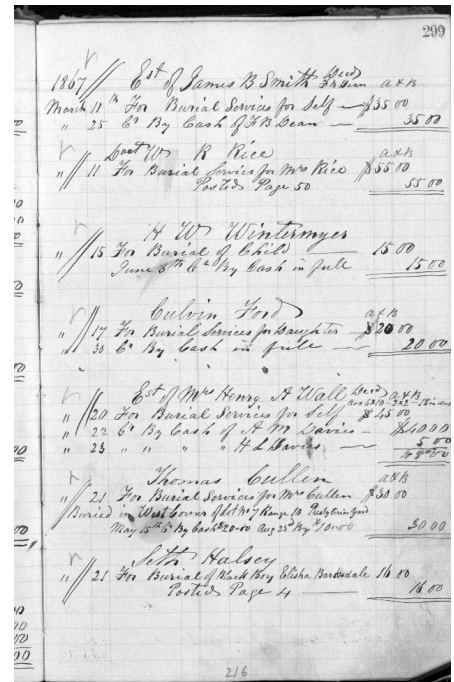 299
1867 Est of James B Smith Decd a & B
March 11th For Burial Services for Self — $35 00
" 25 Cr By Cash of F B Dean — 35 00
W R Rice a & B
" 11 For Burial Services for Mrs Rice $55 00
Posted Page 50 55 00
H W Wintermyer
" 15 For Burial of Child — 15 00
June 5th Cr By Cash in full — 15 00
Culvin Ford a & B
" 17 For Burial Services for Daughter — $20 00
" 30 Cr By Cash in full — 20 00
Est of Mrs Henry A Wall Decd a & B
" 20 For Burial Services for Self $45 00
" 22 Cr By Cash of A M Davies — $40 00
" 23 " " " " H L Davies — 5 00
Thomas Cullin a & B
" 21 For Burial Services for Mrs Cullen $30 00
Buried in West Corner of Lot No 7 Range 10
May 15th Cr By Cash $20.00 Aug 23d By $10.00 30 00
Seth Halsey
" 21 For Burial of Black Boy Elisha Barksdale 16 00
Posted Page 4 — 16 00
216